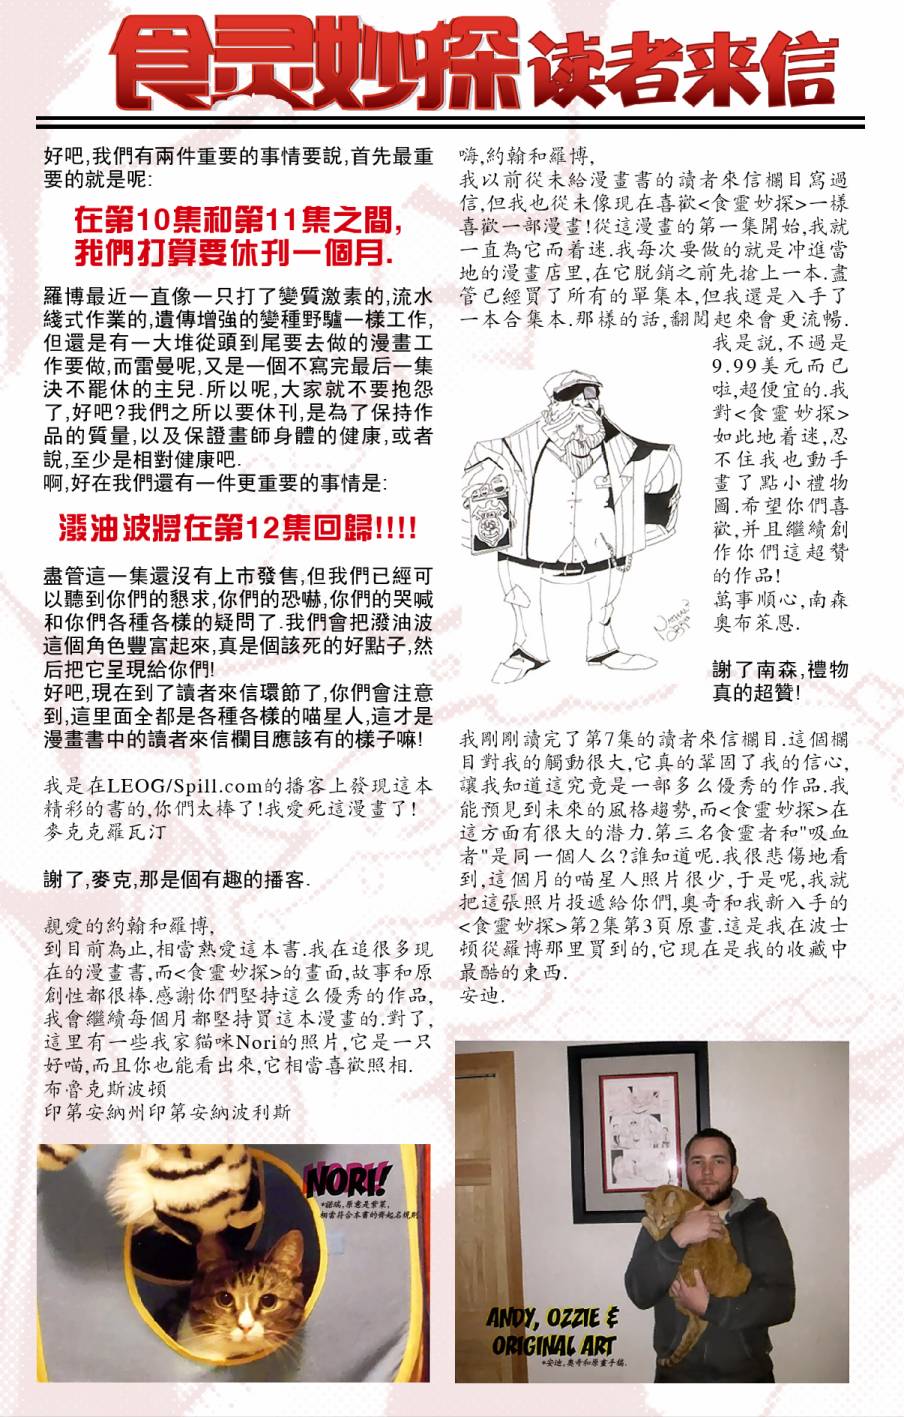 食灵妙探读者来信
好吧,我們有兩件重要的事情要說,首先最重
要的就是呢:
在第10集和第11集之間,
我們打算要休刊一個月.
羅博最近一直像一只打了變質激素的,流水
綫式作業的,遺傳增強的變種野驢一樣工作,
但還是有一大堆從頭到尾要去做的漫畫工
作要做,而雷曼呢,又是一個不寫完最后一集
決不罷休的主兒.所以呢,大家就不要抱怨
了,好吧?我們之所以要休刊,是為了保持作
品的質量,以及保證畫師身體的健康,或者
說,至少是相對健康吧.
啊,好在我們還有一件更重要的事情是:
潑油波將在第12集回歸!!!!
盡管這一集還沒有上市發售,但我們已經可
以聽到你們的懇求,你們的恐嚇,你們的哭喊
和你們各種各樣的疑問了.我們會把潑油波
這個角色豐富起來,真是個該死的好點子,然
后把它呈現給你們!
好吧,現在到了讀者來信環節了,你們會注意
到,這里面全都是各種各樣的喵星人,這才是
漫畫書中的讀者來信欄目應該有的樣子嘛!
我是在LEOG/Spill.com的播客上發現這本
精彩的書的,你們太棒了!我愛死這漫畫了!
麥克克羅瓦汀
謝了,麥克,那是個有趣的播客.
親愛的約翰和羅博,
到目前為止,相當熱愛這本書.我在追很多現
在的漫畫書,而<食靈妙探>的畫面,故事和原
創性都很棒.感謝你們堅持這么優秀的作品,
我會繼續每個月都堅持買這本漫畫的.對了,
這里有一些我家貓咪Nori的照片,它是一只
好喵,而且你也能看出來,它相當喜歡照相.
布魯克斯波頓
印第安納州印第安納波利斯
NORI!
*諾瑞,原意是紫菜,
相當符合本書的齊起名規則.
嗨,約翰和羅博,
我以前從未給漫畫書的讀者來信欄目寫過
信,但我也從未像現在喜歡<食靈妙探>一樣
喜歡一部漫畫!從這漫畫的第一集開始,我就
一直為它而着迷.我每次要做的就是冲進當
地的漫畫店里,在它脫銷之前先搶上一本.盡
管已經買了所有的單集本,但我還是入手了
一本合集本.那樣的話,翻閱起來會更流暢.
我是說,不過是
9.99美元而已
啦,超便宜的.我
對<食靈妙探>
如此地着迷,忍
不住我也動手
畫了點小禮物
圖.希望你們喜
歡,并且繼續創
作你們這超贊
的作品!
萬事順心,南森
奧布萊恩.
謝了南森,禮物
真的超贊!
我剛剛讀完了第7集的讀者來信欄目.這個欄
目對我的觸動很大,它真的鞏固了我的信心,
讓我知道這究竟是一部多么優秀的作品.我
能預見到未來的風格趨勢,而<食靈妙探>在
這方面有很大的潜力.第三名食靈者和"吸血
者"是同一個人么?誰知道呢.我很悲傷地看
到,這個月的喵星人照片很少,于是呢,我就
把這張照片投遞給你們,奧奇和我新入手的
<食靈妙探>第2集第3頁原畫.這是我在波士
頓從羅博那里買到的,它現在是我的收藏中
最酷的東西.
安迪.
ANDY, OZZIE &
ORIGINAL ART
*安迪,奧奇和原畫手稿.